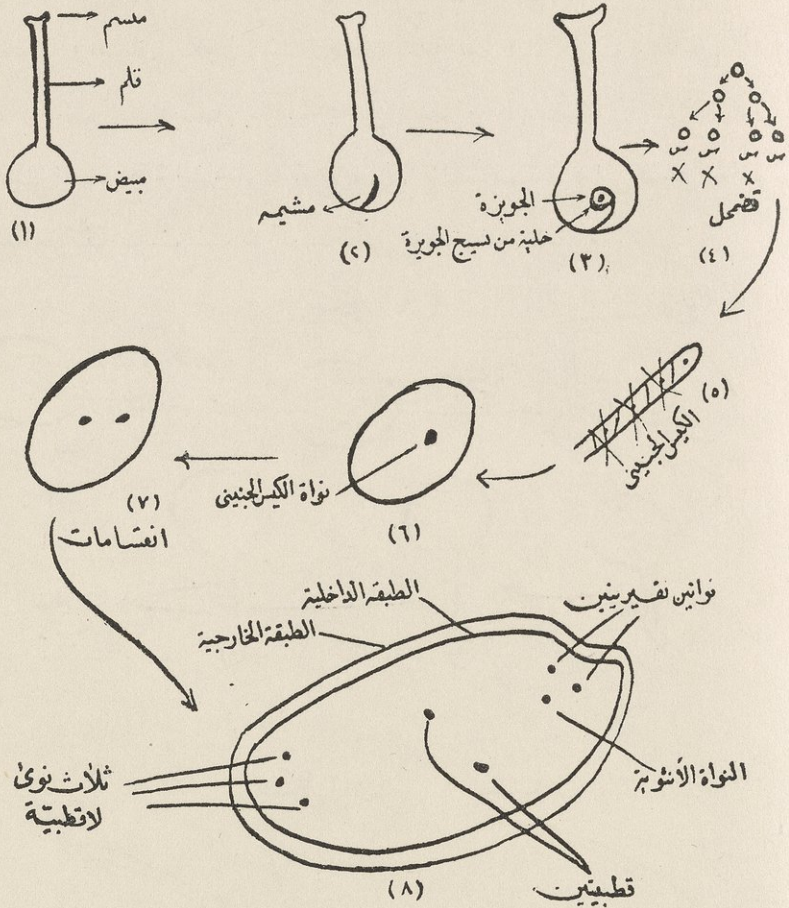 ميسم
قلم
مبيض
(١)
مشيمه
(٢)
الجويزة
خلية من نسيج الجويزة
(٣)
تضمحل
(٤)
(٥)
الكيس الجنيني
نواة الكيس الجنيني
(٦)
(٧)
انقسامات
الطبقه الداخلية
الطبقة الخارجية
نواتين نقيريتين
النواة الأنثوية
ثلاث نوى
لاقطبية
قطبيتين
(٨)